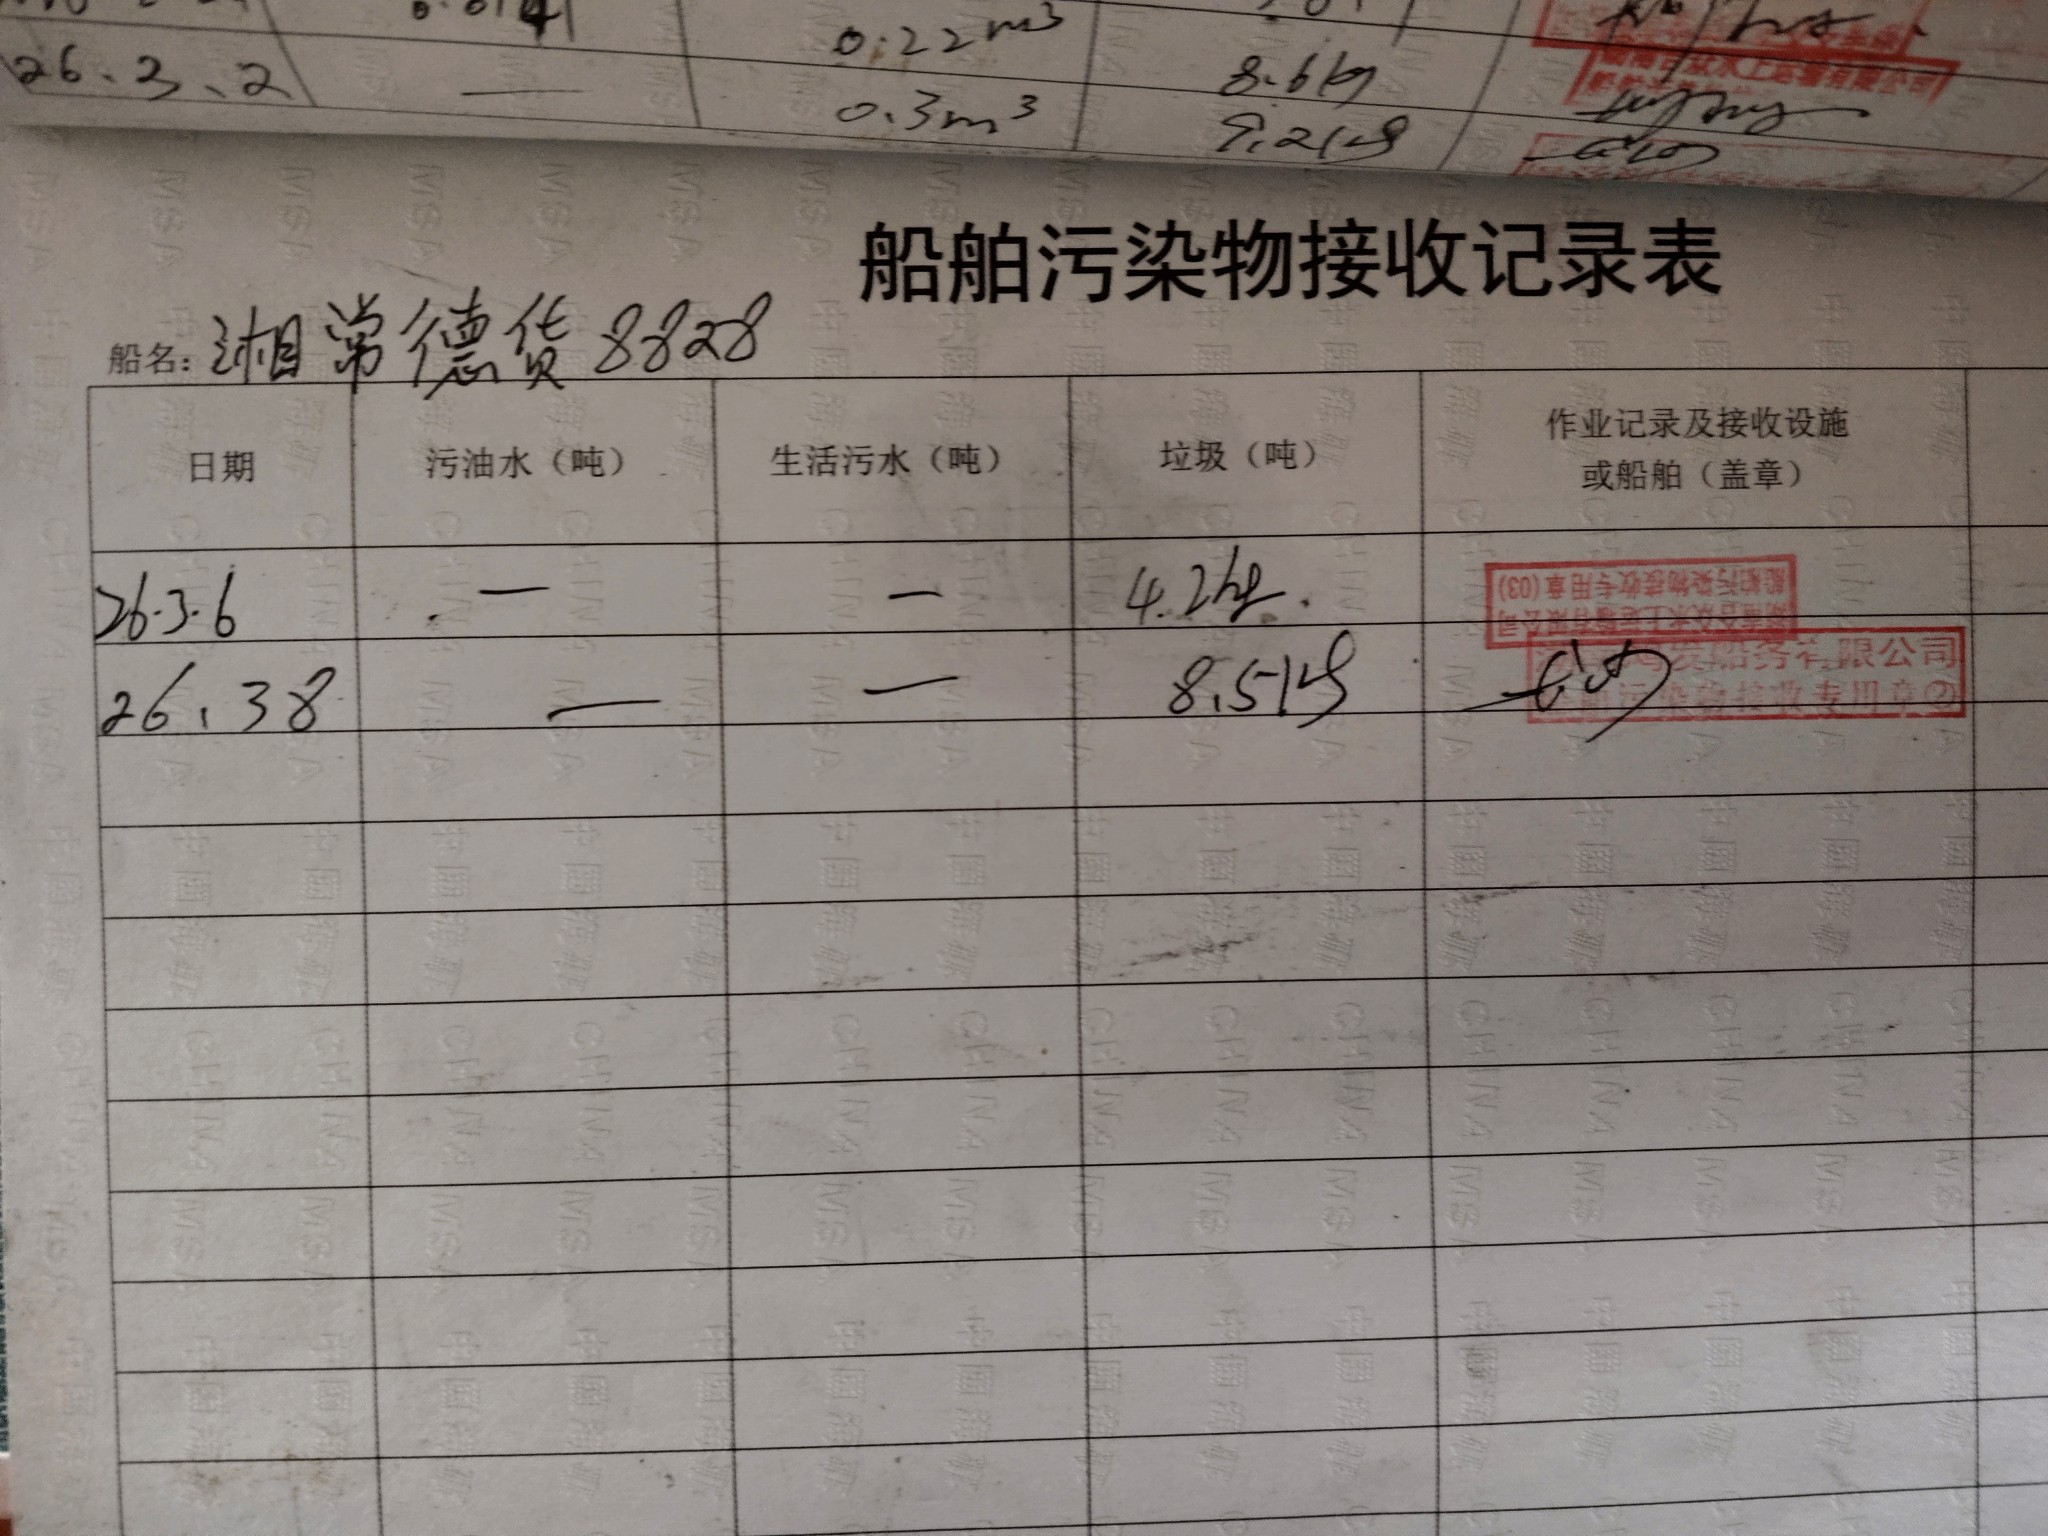 26.3.2 — 0.3m³ 9.2kg
0.22m³ 8.6kg
船舶污染物接收记录表
船名：湘常德货8828
日期 污油水（吨） 生活污水（吨） 垃圾（吨） 作业记录及接收设施
或船舶（盖章）
26.3.6 — — 4.2kg.
船舶污染物接收专用章(03)
26.38 — — 8.5kg
船务有限公司
污染物接收专用章②